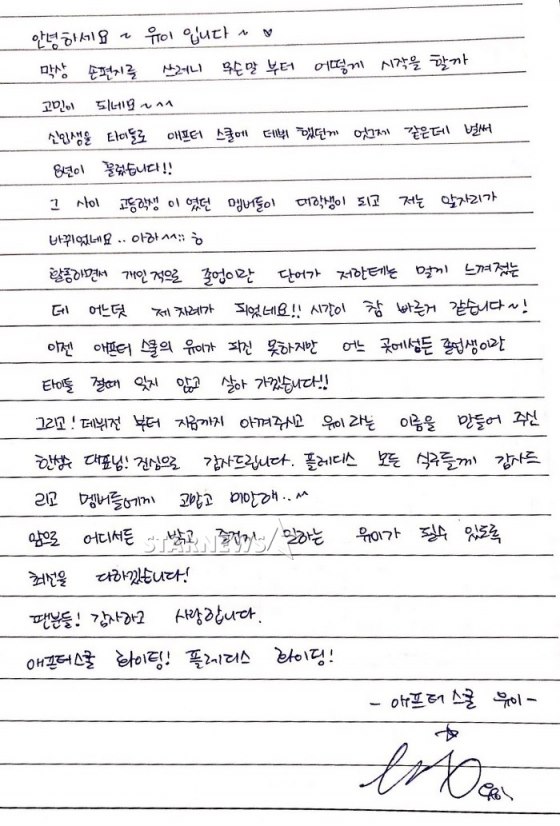 안녕하세요 ~ 유이 입니다 ~ ♥
막상 손편지를 쓰려니 무슨말 부터 어떻게 시작을 할까
고민이 되네요~^^
신입생을 타이틀로 애프터 스쿨에 데뷔 했던게 엊그제 같은데 벌써
8년이 흘렀습니다!!
그 사이 고등학생 이 였던 멤버들이 대학생이 되고 저는 앞자리가
바뀌었네요.. 아하^^;; ㅎ
활동하면서 개인적으로 졸업이란 단어가 저한테는 멀게 느껴졌는
데 어느덧 제 차례가 되었네요!! 시간이 참 빠른거 같습니다~!
이젠 애프터 스쿨의 유이가 되진 못하지만 어느 곳에서든 졸업생이란
타이틀 절때 잊지 않고 살아 가겠습니다!!
그리고! 데뷔전 부터 지금까지 아껴주시고 유이라는 이름을 만들어 주신
한성수 대표님! 진심으로 감사드립니다. 플레디스 모든 식구들께 감사드
리고 멤버들에게 고맙고 미안해..^^
앞으로 어디서든 밝고 즐겁게 일하는 유이가 될수 있도록
STARNEWS
최선을 다하겠습니다!
팬분들! 감사하고 사랑합니다.
애프터스쿨 화이팅! 플레디스 화이팅!
- 애프터 스쿨 유이 -